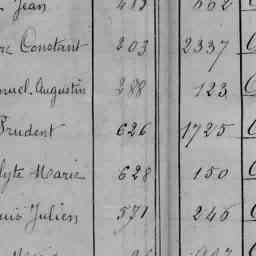 Jean 483 662
Constant 203 2337
nuel Augustin 288 123
Prudent 626 1725
lyte Marie 628 150
uis Julien 571 245